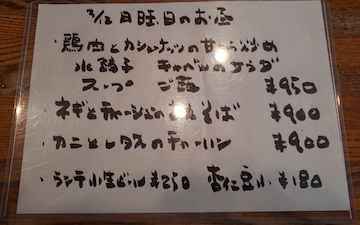 3/12 月曜日のお昼
・鶏肉とカシューナッツの甘辛炒め
水餃子 キャベツのサラダ
スープ ご飯 ¥950
・ネギとチャーシューのあえそば ¥900
・カニとレタスのチャーハン ¥900
・ランチ小生ビール ¥250 杏仁豆腐小 ¥180